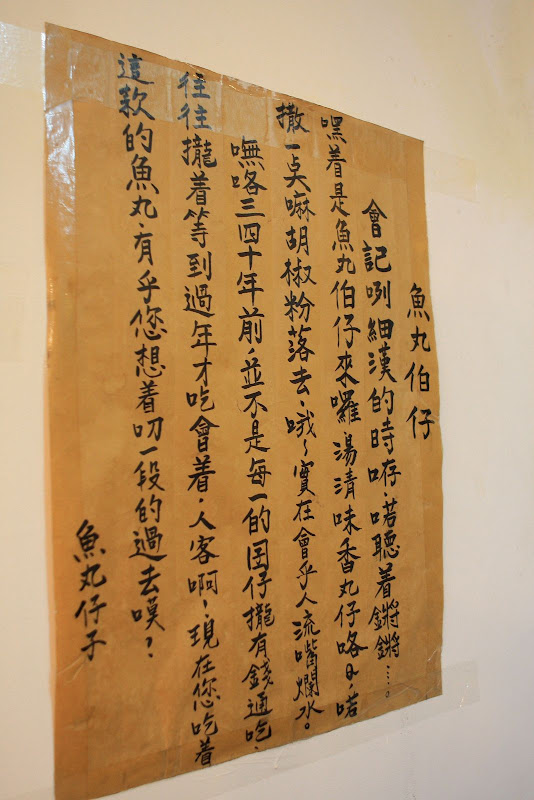 魚丸伯仔
會記咧細漢的時存，喏聽着鏘鏘…。
嘿着是魚丸伯仔來囉，湯清味香丸仔咯Q，喏
撒一点嘛胡椒粉落去，哦～實在會乎人流嘴爛水。
嘸咯三四十年前，並不是每一的囝仔攏有錢通吃，
往往攏着等到過年才吃會着。人客啊！現在您吃着
這款的魚丸，有乎您想着叨一段的過去嘆？
魚丸仔子